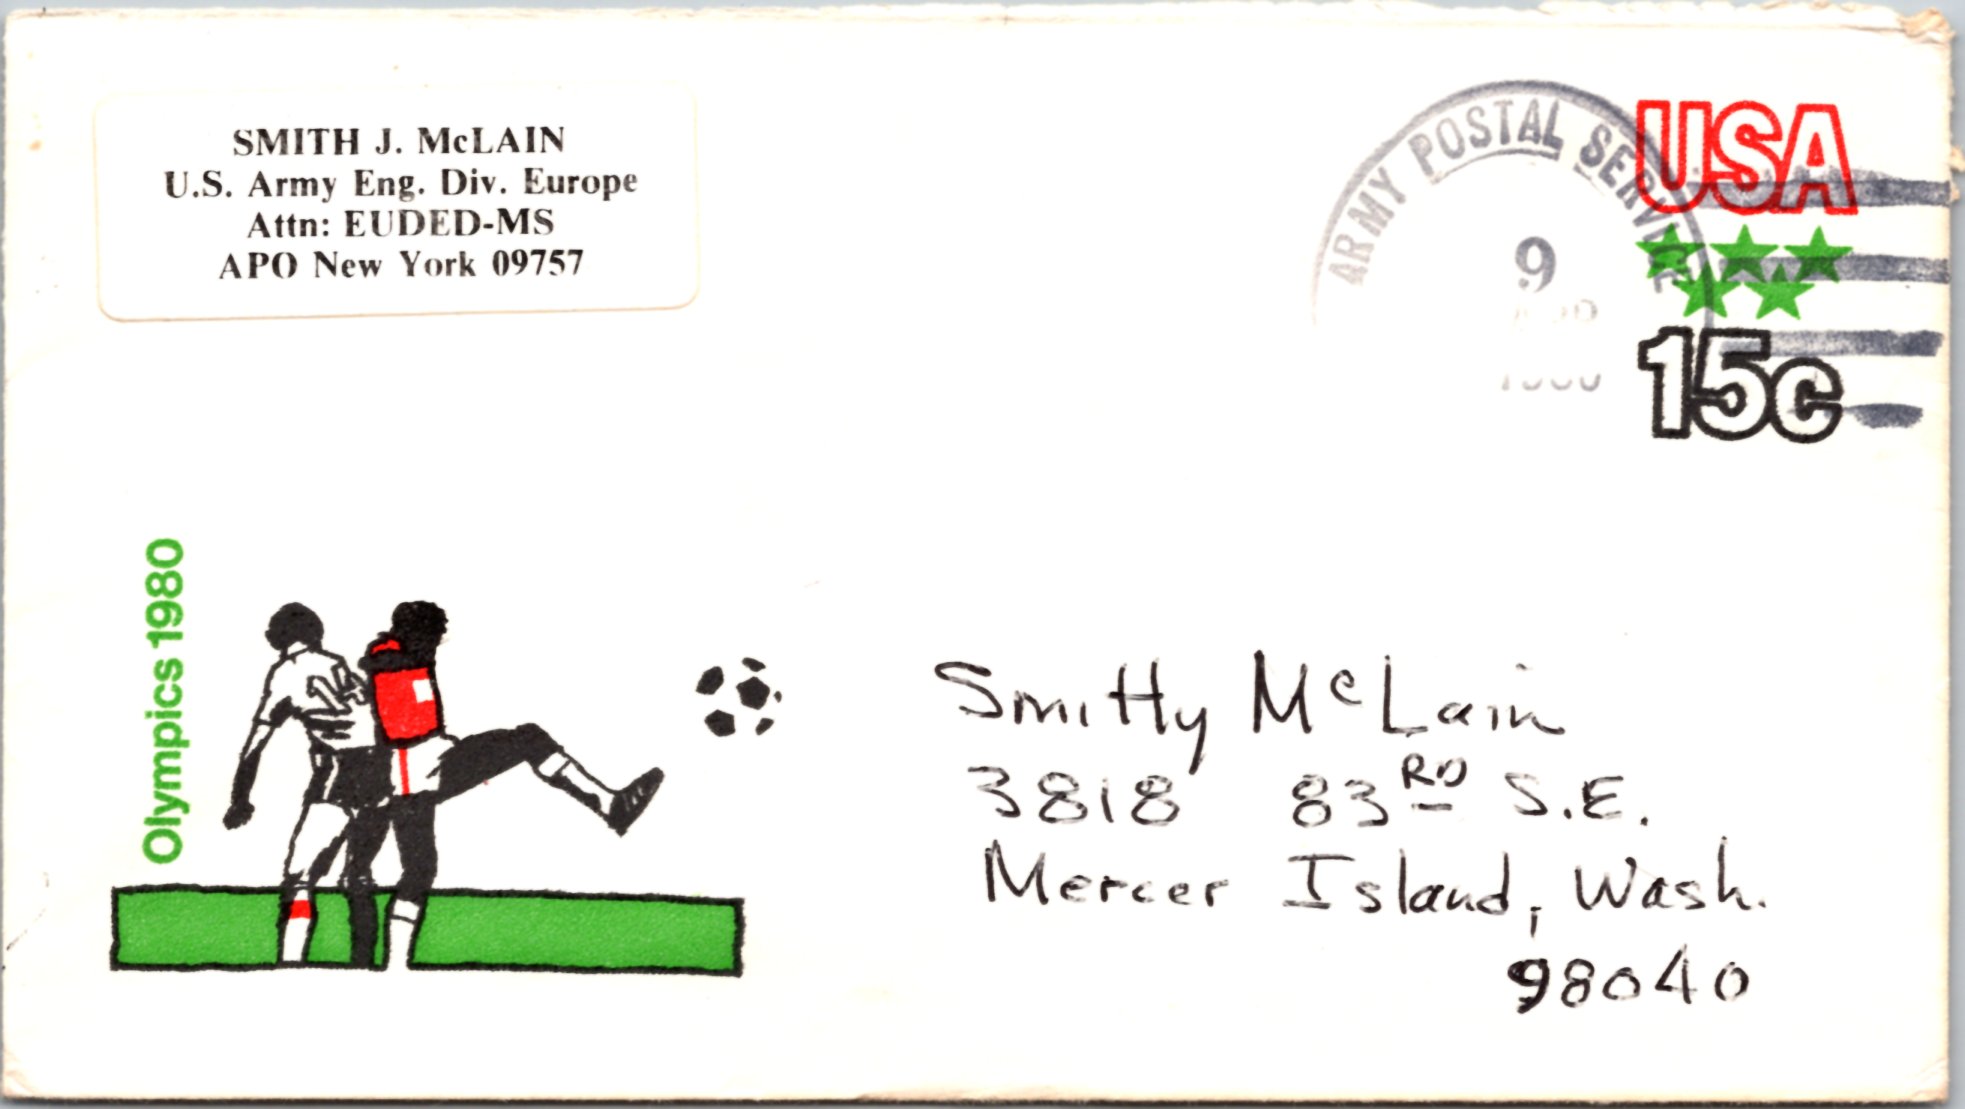 SMITH J. McLAIN
U.S. Army Eng. Div. Europe
Attn: EUDED-MS
APO New York 09757
ARMY POSTAL SERVICE
9
USA
15c
Olympics 1980
14
Smitty McLain
3818 83RD S.E.
Mercer Island, Wash.
98040